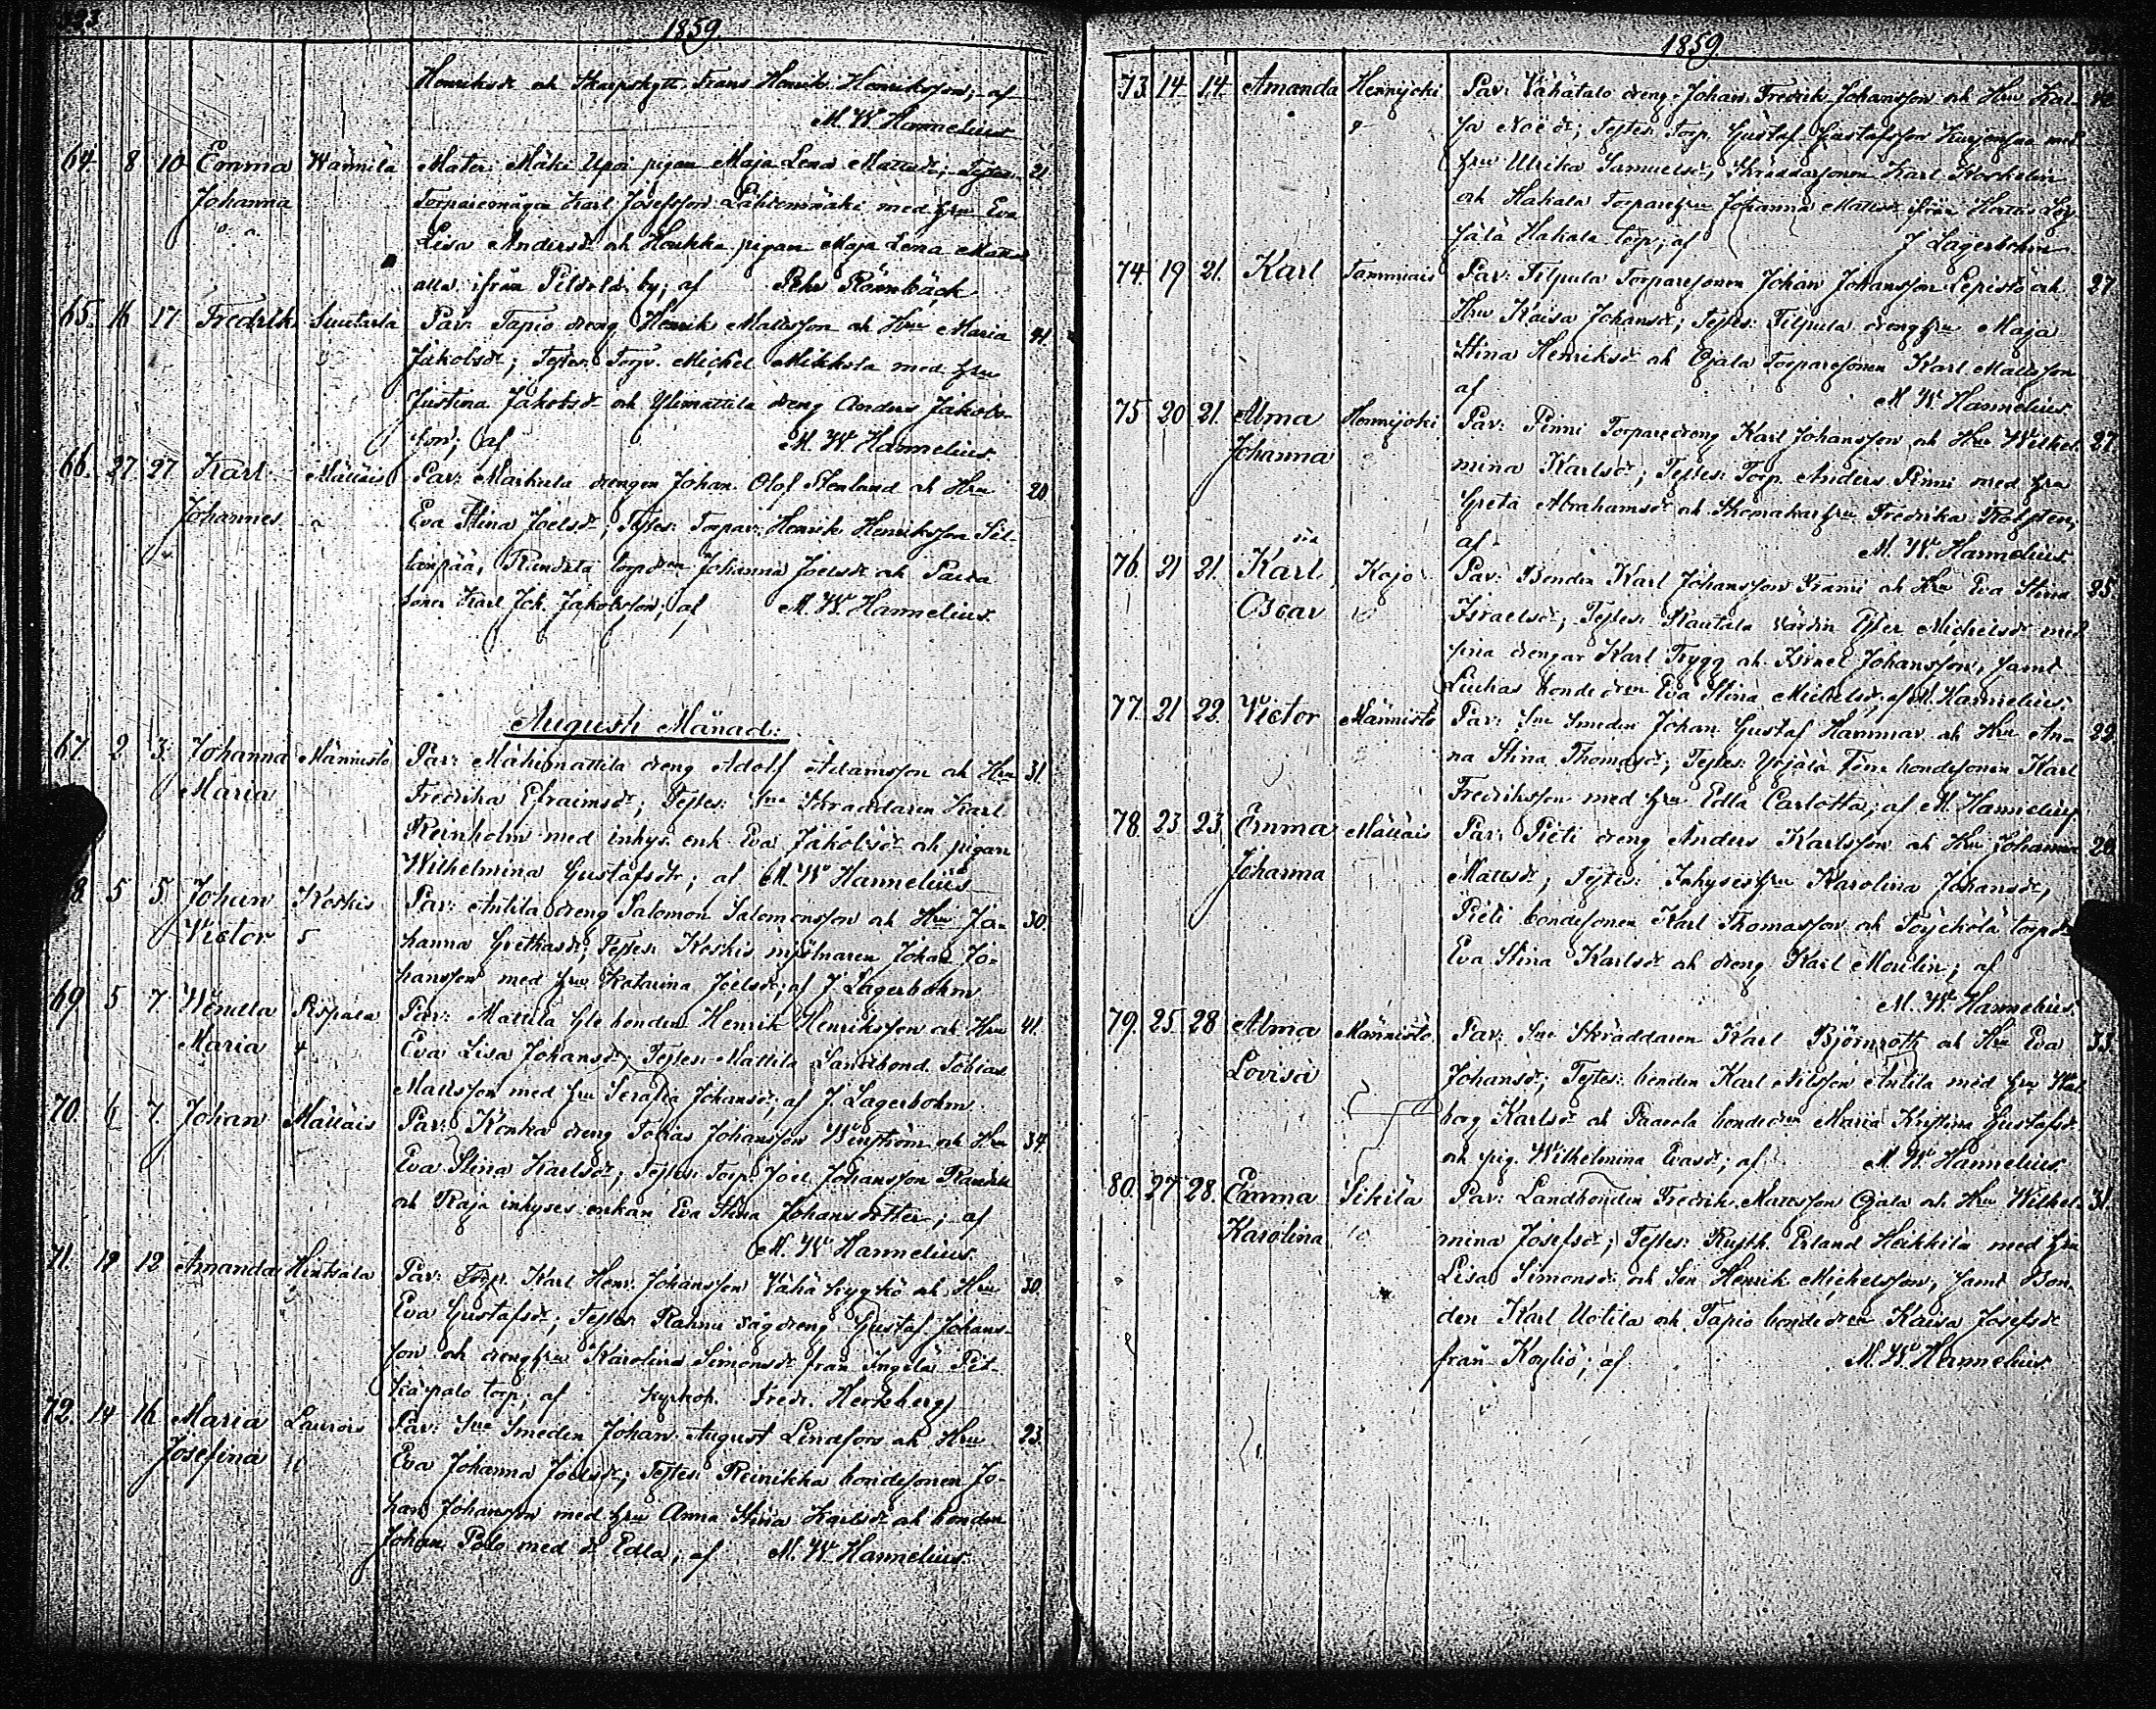 323.
1859.
Henriksdr och Skarpskytt. Frans Henrik Henriksson; af
M. W. Hannelius
64. 8 10 Emma Wännilä Mater: Mäki Upoi pigan Maja Lena Mattsdr; Testes: 21
Johanna Torparemågen Karl Josefsson Lähteenmäki med hu Eva
Lisa Andersdr och Houkka pigan Maja Lena Matts
alla ifrån Pildola by; af Pehr Rönnbäck
65. 16 17 Fredrik Suutarla Par: Tapio dreng Henrik Mattsson och Hu Maria 41.
Jakobsdr; Testes: Torp. Michel Mikkola med hu
Justina Jakobsdr och Ylimattila dreng Anders Jakobs-
son; af M. W. Hannelius
66. 27. 27 Karl Mällais Par: Markula drengen Johan Olof Stenlund och Hu 20.
Johannes Eva Stina Joelsdr; Testes: Torpar. Henrik Henriksson Sil-
lanpää, torpdrn Johanna Joelsdr och
sonen Karl Joh. Jakobsson; af M. W. Hannelius.
Augusti Månad:
67. 2 3. Johanna Männistö Par: Mähimattila dreng Adolf Adamsson och Hu 31.
Maria Fredrika Efraimsdr; Testes: Sne Skraddaren Karl
Reinholm med inhys. enk. Eva Jakobsdr och pigan
Wilhelmina Gustafsdr; af M. W. Hannelius
68. 5 5. Johan Koskis Par: Antila dreng Salomon Salomonsson och Hu Jo- 30.
Victor 5 hanna Grethasdr; Testes: Koskis mjölnaren Johan Jo-
hansson med hu Katarina Joelsdr; af J. Lagerbohm
69 5 7. Wendla Rispala Par: Mattila Yle bonden Henrik Henriksson och Hu 41.
Maria 4 Eva Lisa Johansdr; Testes: Mattila Landbond. Tobias
Mattsson med hu Serafia Johansdr; af J. Lagerbohm
70. 6 7. Johan Mällais Par: Konka dreng Tobias Johansson Winström och Hu 34.
Eva Stina Karlsdr; Testes: Torp. Joel Johansson
och Raja inhyses enkan Eva Stina Johansdotter; af
M. W. Hannelius.
71. 12 12 Amanda Hinksala Par: Torp. Karl Henr. Johansson Vähä kyykö och Hu 30.
Eva Gustafsdr; Testes: Rannu sågdreng Gustaf Johans-
son och dreng hu Karolina Simonsdr från Ingilä Pit-
käpalo torp; af kyrkoh. Fredr. Hertzberg
72. 14 16 Maria Laurois Par: Sne Smeden Johan August Lindfors och Hu 23.
Josefina 11 Eva Johanna Joelsdr; Testes: Reinikka bondesonen Jo-
han Johansson med hu Anna Stina Karlsdr och bonden
Johan Polo med dr Edla; af M. W. Hannelius.
1859
73. 14 14. Amanda Hennijoki Par: Vähätalo dreng Johan Fredrik Johansson och Hu Kai-
sa Noëdr; Testes: Torp. Gustaf Gustafsson med
hu Ulrika Samuelsdr, Skräddarsonen Karl Koskelin
och Hakala Torparehu Johanna Mattsdr ifrån
Hakala torp; af J Lagerbohm
74. 19 21. Karl Tammiais Par: Filpula Torparesonen Johan Johansson Lepistö och 27
Hu Kaisa Johansdr; Testes: Filpula drenghu Maja
Stina Henriksdr och Ojala Torparesonen Karl Mattsson
af M. W. Hannelius
75 20 21. Alma Hennijoki Par: Pinni Torparedreng Karl Johansson och Hu Wilhel- 27.
Johanna mina Karlsdr; Testes: Torp. Anders Pinni med hu
Greta Abrahamsdr och Skomakarhu Fredrika
af M. W. Hannelius.
76. 21 21. Karl Kojo Par: Bonden Karl Johansson Frami och Hu Eva Stina 25.
Oscar Israelsdr; Testes: Rautala värdin Ester Michelsdr med
sina drengar Karl Trygg och Israel Johansson, samt
Luukas bondedrn Eva Stina Michelsdr; af M. Hannelius.
77. 21 22. Victor Männistö Par: Sne Smeden Johan Gustaf Hammar och Hu An- 22.
na Stina Thomasdr; Testes: Yöjälä bondesonen Karl
Fredriksson med hu Edla Carlotta; af M. Hannelius
78. 23 23 Emma Mällais Par: Pieti dreng Anders Karlsson och Hu Johanna 20.
Johanna Mattsdr; Testes: Inhyseshu Karolina Johansdr,
Pieti bondesonen Karl Thomasson och torpdr
Eva Stina Karlsdr och dreng Karl Moulin; af
M. W. Hannelius.
79. 25 28 Alma Männistö Par: Sne Skräddaren Karl Björnroth och Hu Eva 33.
Lovisa Johansdr; Testes: bonden Karl Nilsson Antila med hu Wal-
borg Karlsdr och Paavola bondedrn Maria Kristina Gustafsdr
och pig. Wilhelmina Evasdr; af M. W. Hannelius
80. 27 28. Emma Sikilä Par: Landbonden Fredrik Mattsson Ojala och Hu Wilhel- 31.
Karolina mina Josefsdr; Testes: Rusth. Erland Heikkilä med hu
Lisa Simonsdr och Son Henrik Michelsson, samt Bon-
den Karl Uotila och Tapio bondedrn Kaisa Josefsdr
från Kjuliö; af M. W. Hannelius